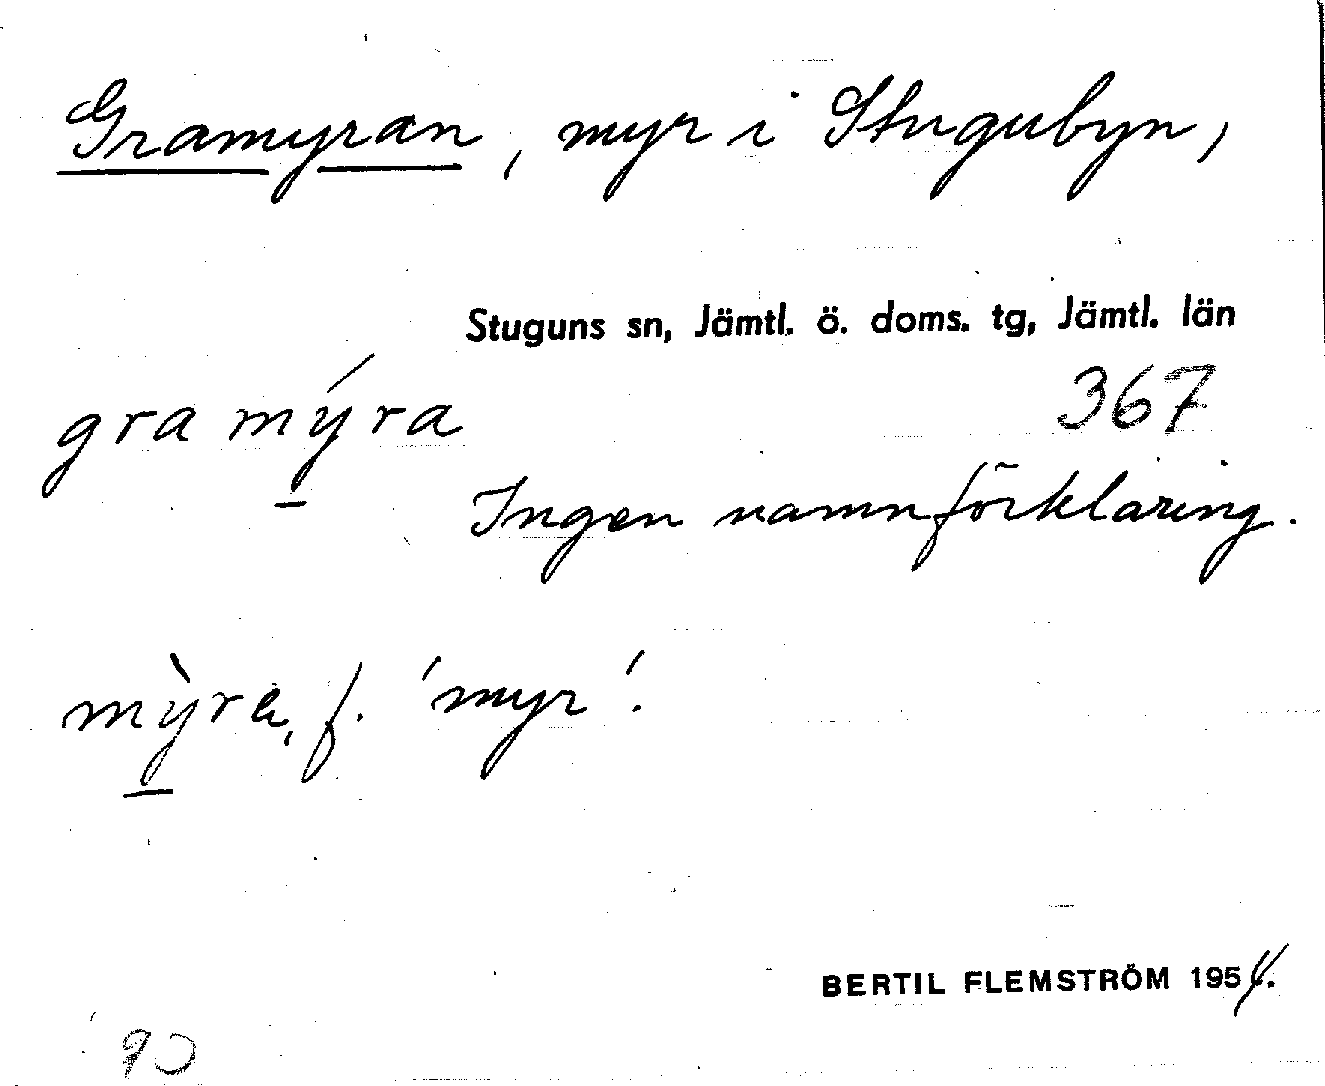 Gramyran, myr i Stugubyn,
Stuguns sn, Jämtl. ö. doms. tg, Jämtl. län
gramýra
367
Ingen namnförklaring.
mỳra, f. 'myr'.
BERTIL FLEMSTRÖM 1954.